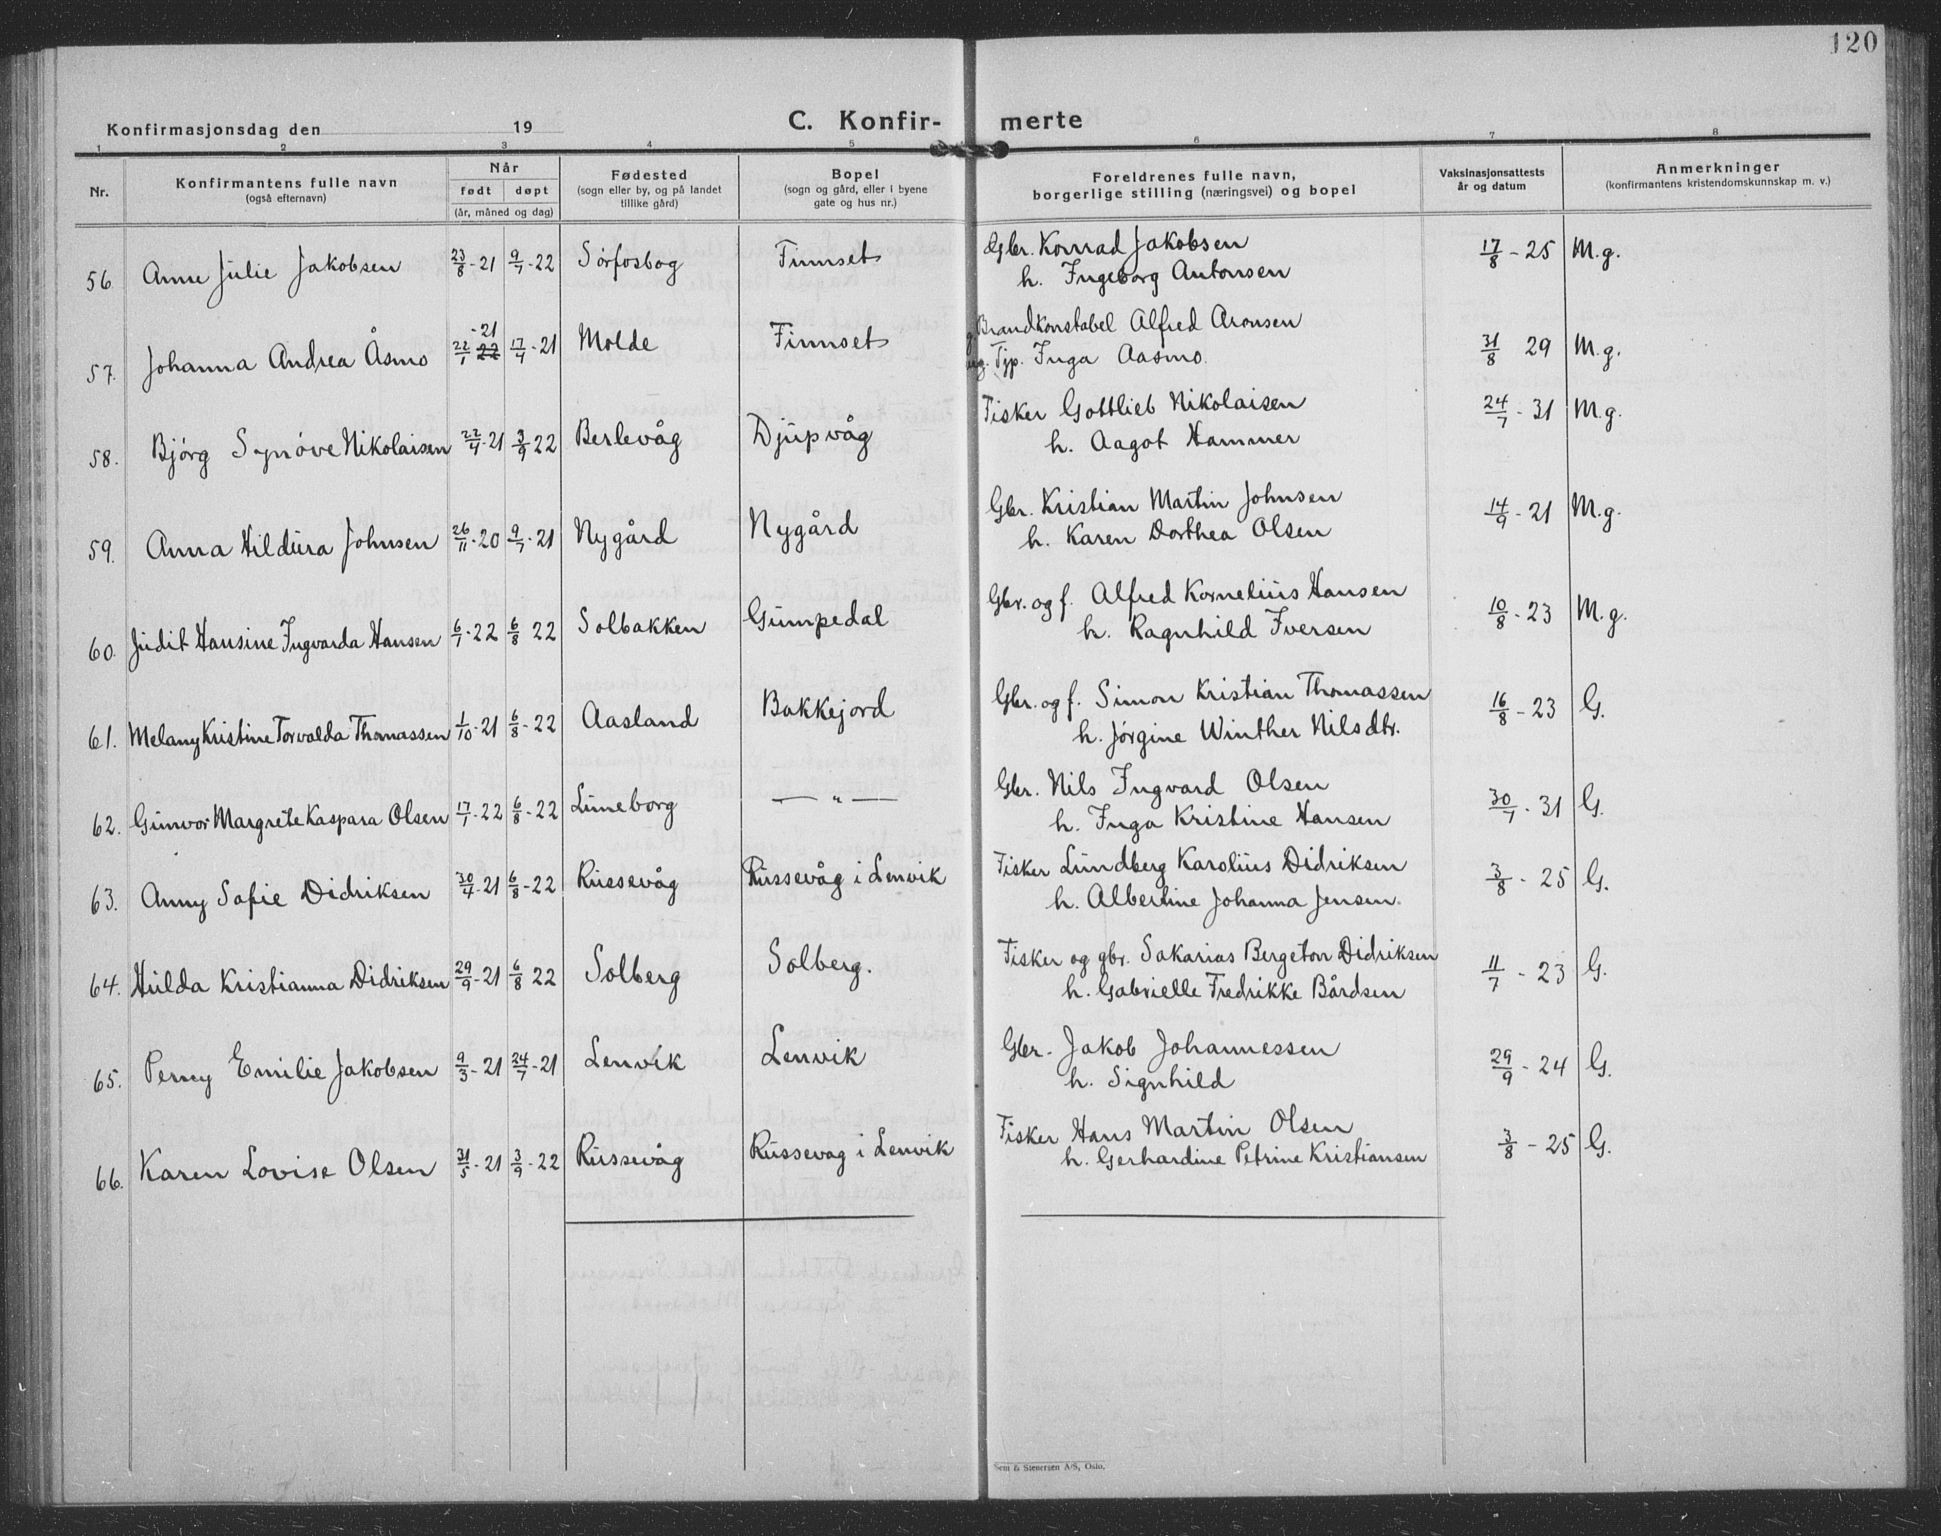 120
Konfirmasjonsdag den 19 C. Konfir- merte
1 2 3 4 5 6 7 8
Nr. Konfirmantens fulle navn (også efternavn) Når født døpt (år, måned og dag) Fødested (sogn eller by, og på landet tillike gård) Bopel (sogn og gård, eller i byene gate og hus nr.) Foreldrenes fulle navn, borgerlige stilling (næringsvei) og bopel Vaksinasjonsattests år og datum Anmerkninger (konfirmantens kristendomskunnskap m. v.)
56. Anne Julie Jakobsen 23/8-21 9/7-22 Sørfosbog Finnset Gbr. Konrad Jakobsen 17/8-25 M.g.
h. Ingeborg Antonsen
57. Johanna Andrea Åsmo 22/1 22 -21 17/4-21 Molde Finnset Brandkonstabel Alfred Aronsen 31/8 29 M.g.
og ug. Typ. Inga Aasmo.
58. Bjørg Synöve Nikolaisen 22/4-21 3/9 22 Berlevåg Djupvåg Fisker Gottlieb Nikolaisen 24/7-31 M.g.
h. Aagot Hammer
59. Anna Hildura Johnsen 26/11-20 9/7-21 Nygård Nygård Gbr. Kristian Martin Johnsen 14/9-21 M.g.
h. Karen Dorthea Olsen
60. Judit Hansine Ingvarda Hansen 6/7-22 6/8 22 Solbakken Gumpedal Gbr. og f. Alfred Kornelius Hansen 10/8-23 M.g.
h. Ragnhild Iversen
61. Melany Kristine Torvalda Thomassen 1/10-21 6/8-22 Aasland Bakkejord Gbr. og f. Simon Kristian Thomassen 16/8-23 G.
h. Jørgine Winther Nilsdtr.
62. Gunvor Margrete Kaspara Olsen 17/1-22 6/8-22 Luneborg — " — Gbr. Nils Ingvard Olsen 30/7-31 G.
h. Inga Kristine Hansen
63. Anny Sofie Didriksen 30/4-21 6/8-22 Russevåg Russevåg i Lenvik Fisker Lundberg Karolius Didriksen 3/8-25 G.
h. Albertine Johanna Jensen.
64. Hulda Kristianna Didriksen 29/9-21 6/8 22 Solberg Solberg. Fisker og gbr. Sakarias Bergeton Didriksen 11/7-23 G.
h. Gabrielle Fredrikke Bårdsen
65. Perney Emilie Jakobsen 9/3-21 24/7-21 Lenvik Lenvik Gbr. Jakob Johannessen 29/9-24 G.
h. Signhild
66. Karen Lovise Olsen 31/5-21 3/9-22 Russevåg Russevåg i Lenvik Fisker Hans Martin Olsen 3/8-25 G.
h. Gerhardine Petrine Kristiansen
Sem & Stenersen A/S, Oslo.